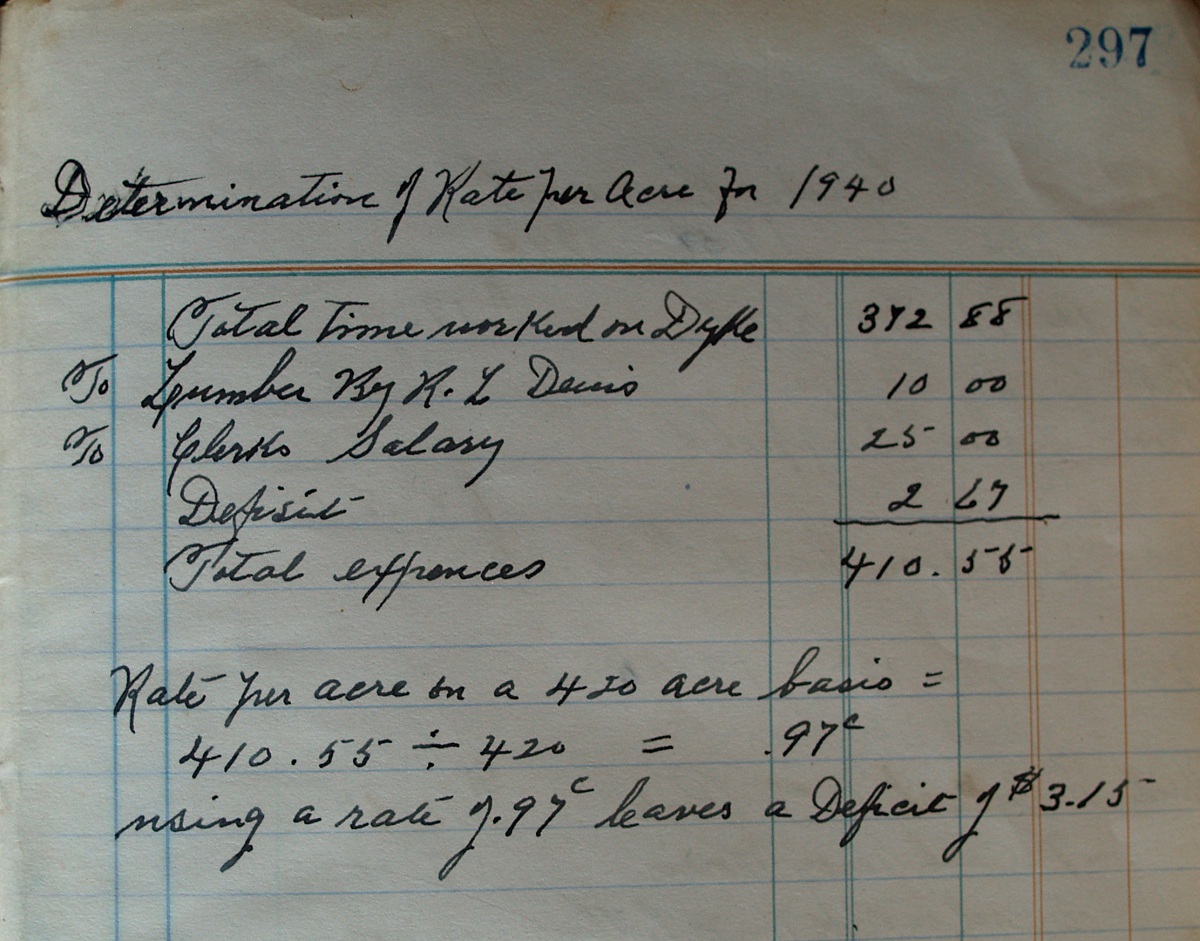 297
Determination of Rate per Acre For 1940
Total Time worked on Dyke 372 88
To Lumber By R. L Davis 10 00
To Clerks Salary 25 00
Defisit 2 67
Total expences 410. 55
Rate per acre on a 420 acre basis =
410.55 ÷ 420 = .97c
using a rate of .97c leaves a Deficit of $3.15